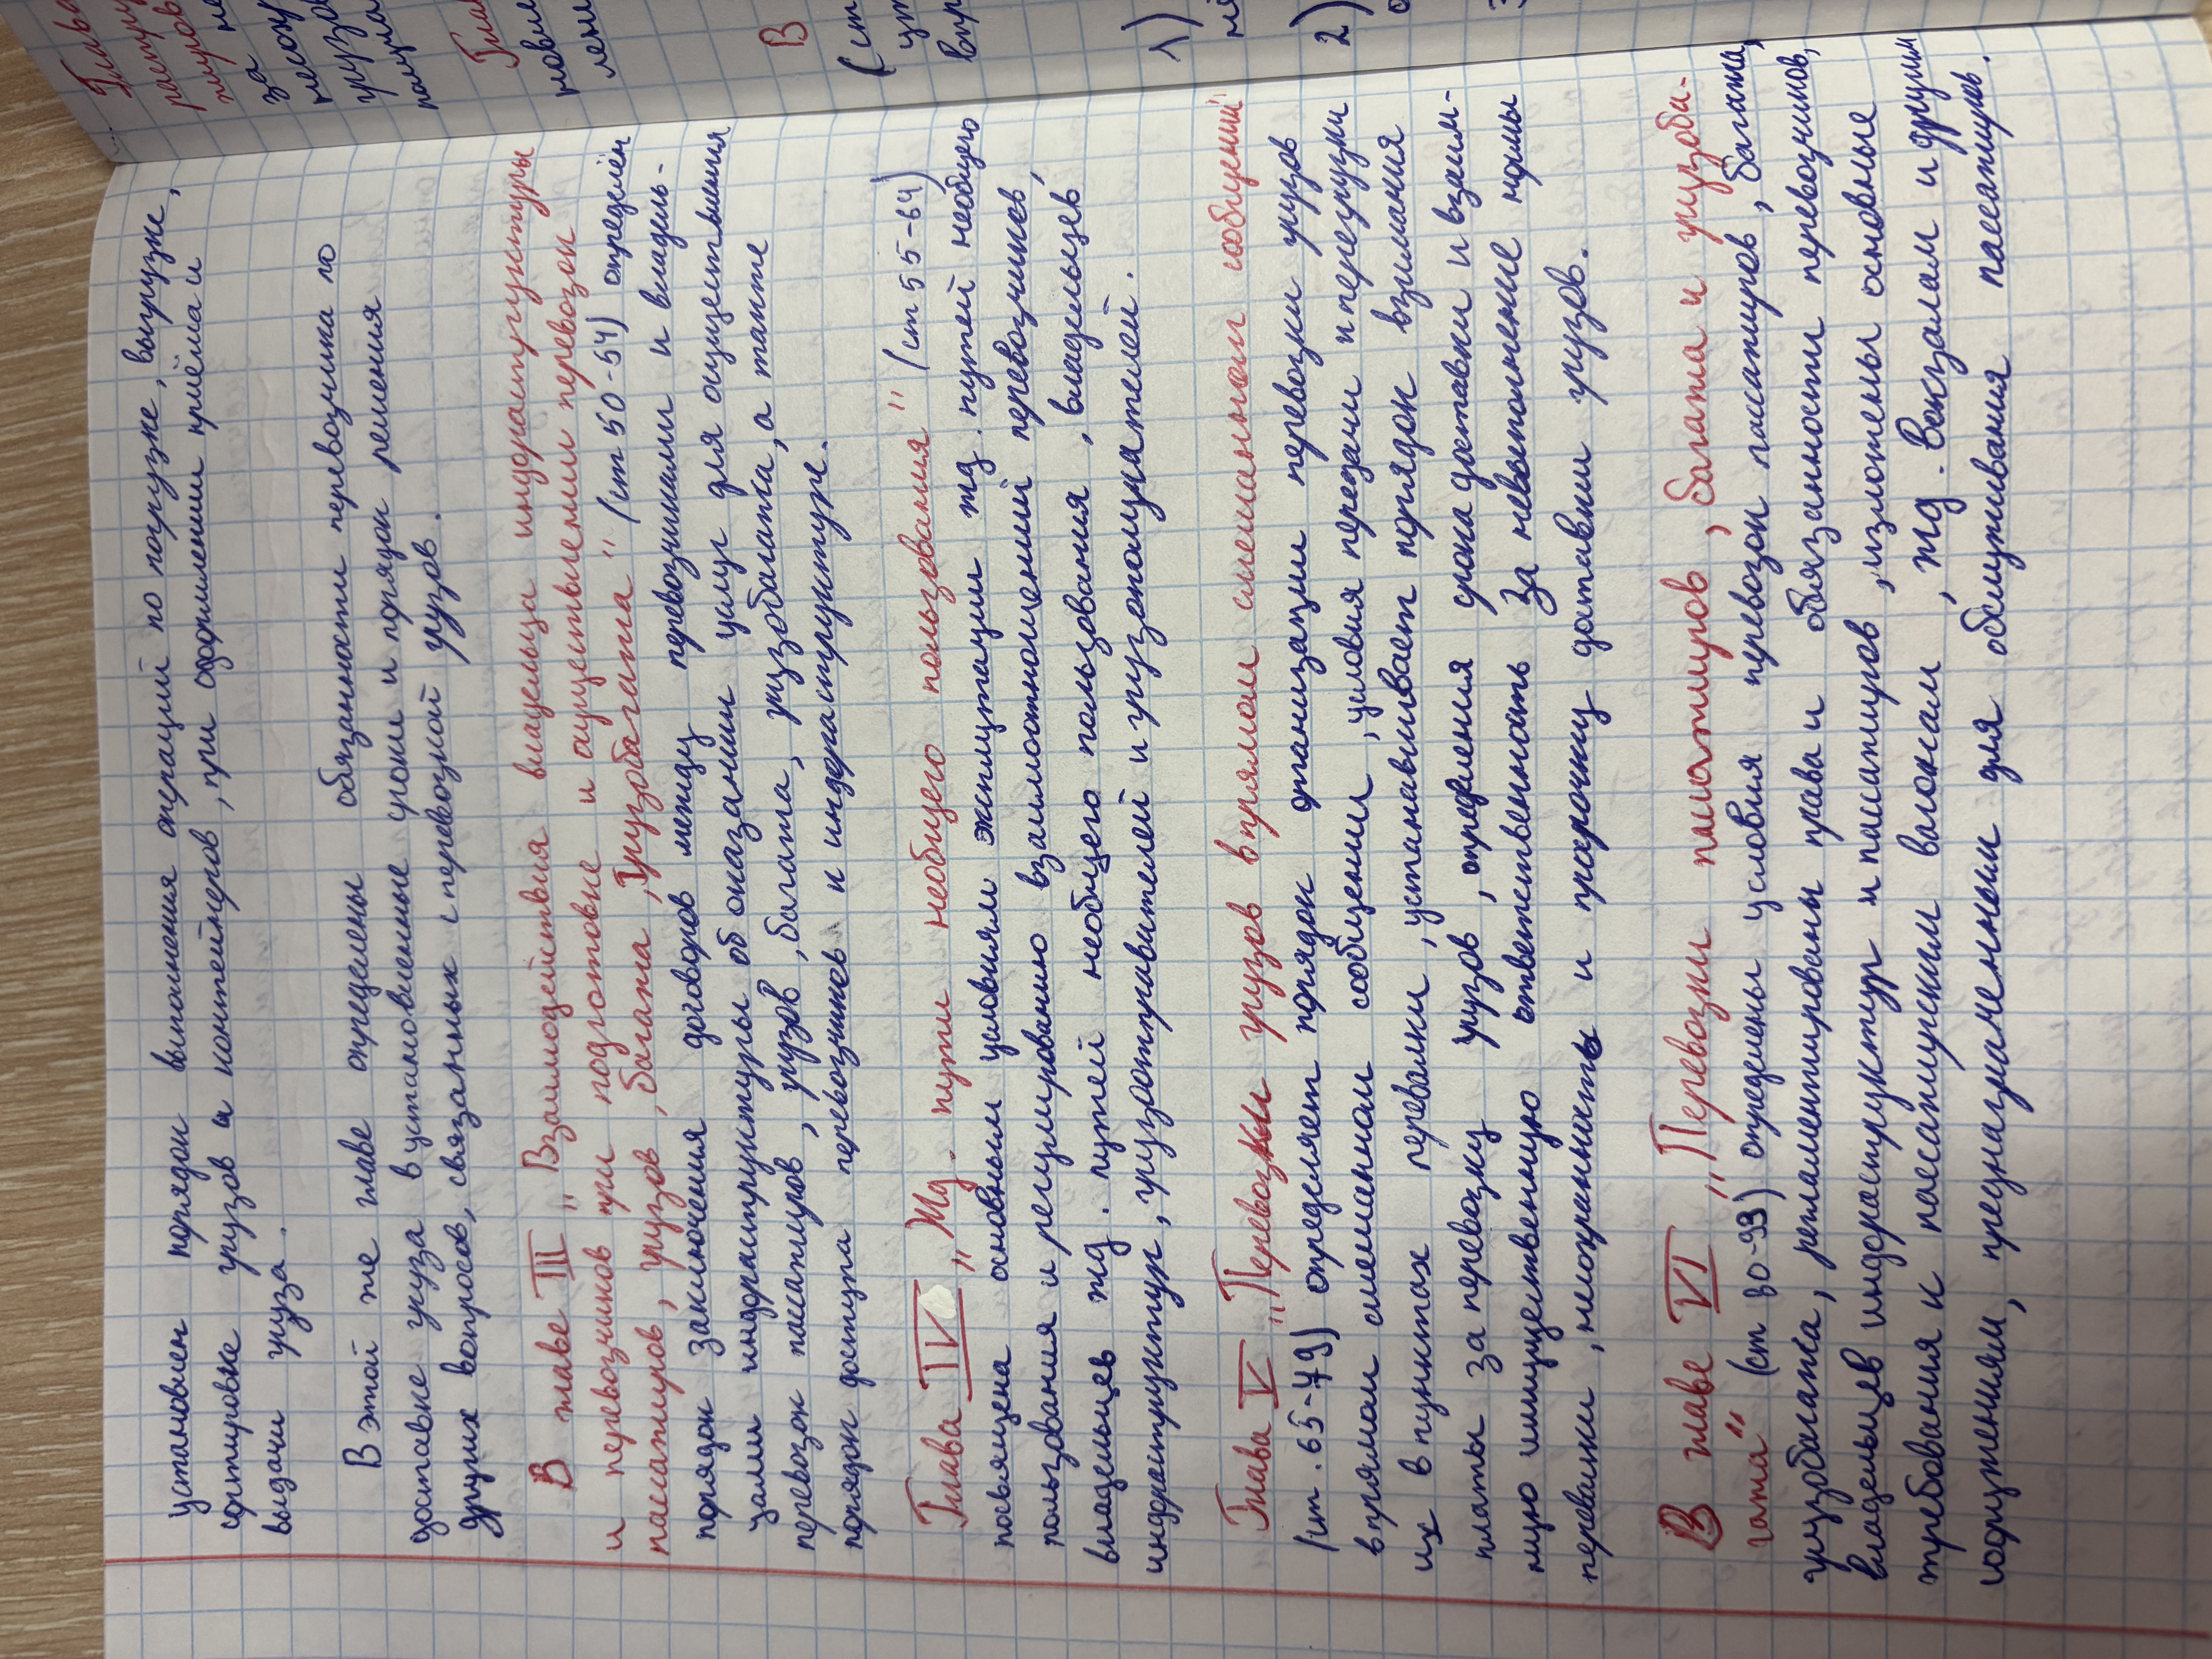 установлен порядок выполнения операций по погрузке, выгрузке,
сортировке грузов и контейнеров, при оформлении приёма и
выдачи груза.
В этой же главе определены обязанности перевозчика по
доставке груза в установленные сроки и порядок решения
других вопросов, связанных с перевозкой грузов.
В главе III „Взаимодействия владельца инфраструктуры
и перевозчиков при подготовке и осуществлении перевозок
пассажиров, грузов, багажа, грузобагажа" (ст 50-54) определён
порядок заключения договоров между перевозчиками и владель-
цами инфраструктуры об оказании услуг для осуществления
перевозок пассажиров, грузов, багажа, грузобагажа, а также
порядок доступа перевозчиков к инфраструктуре.
Глава IV „Жд. пути необщего пользования" (ст 55-64)
посвящена основным условиям эксплуатации жд. путей необщего
пользования и регулированию взаимоотношений перевозчиков,
владельцев жд. путей необщего пользования, владельцев
инфраструктур, грузоотправителей и грузополучателей.
Глава V „Перевозки грузов в прямом смешанном сообщении"
(ст. 65-79) определяет порядок организации перевозки грузов
в прямом смешанном сообщении, условия передачи и перегрузки
их в пунктах перевалки, устанавливает порядок взимания
платы за перевозку грузов, определения срока доставки и взаим-
ную имущественную ответственность за невыполнение нормы
перевалки, несохранность и просрочку доставки грузов.
В главе VI „Перевозки пассажиров, багажа и грузоба-
гажа" (ст 80-99) определены условия перевозок пассажиров, багажа,
грузобагажа, регламентированы права и обязанности перевозчиков,
владельцев инфраструктур и пассажиров, изложены основные
требования к пассажирским вагонам, жд. вокзалам и другим
сооружениям, предназначенным для обслуживания пассажиров.
Глава
за
грузо
В
(ст
1)
2)